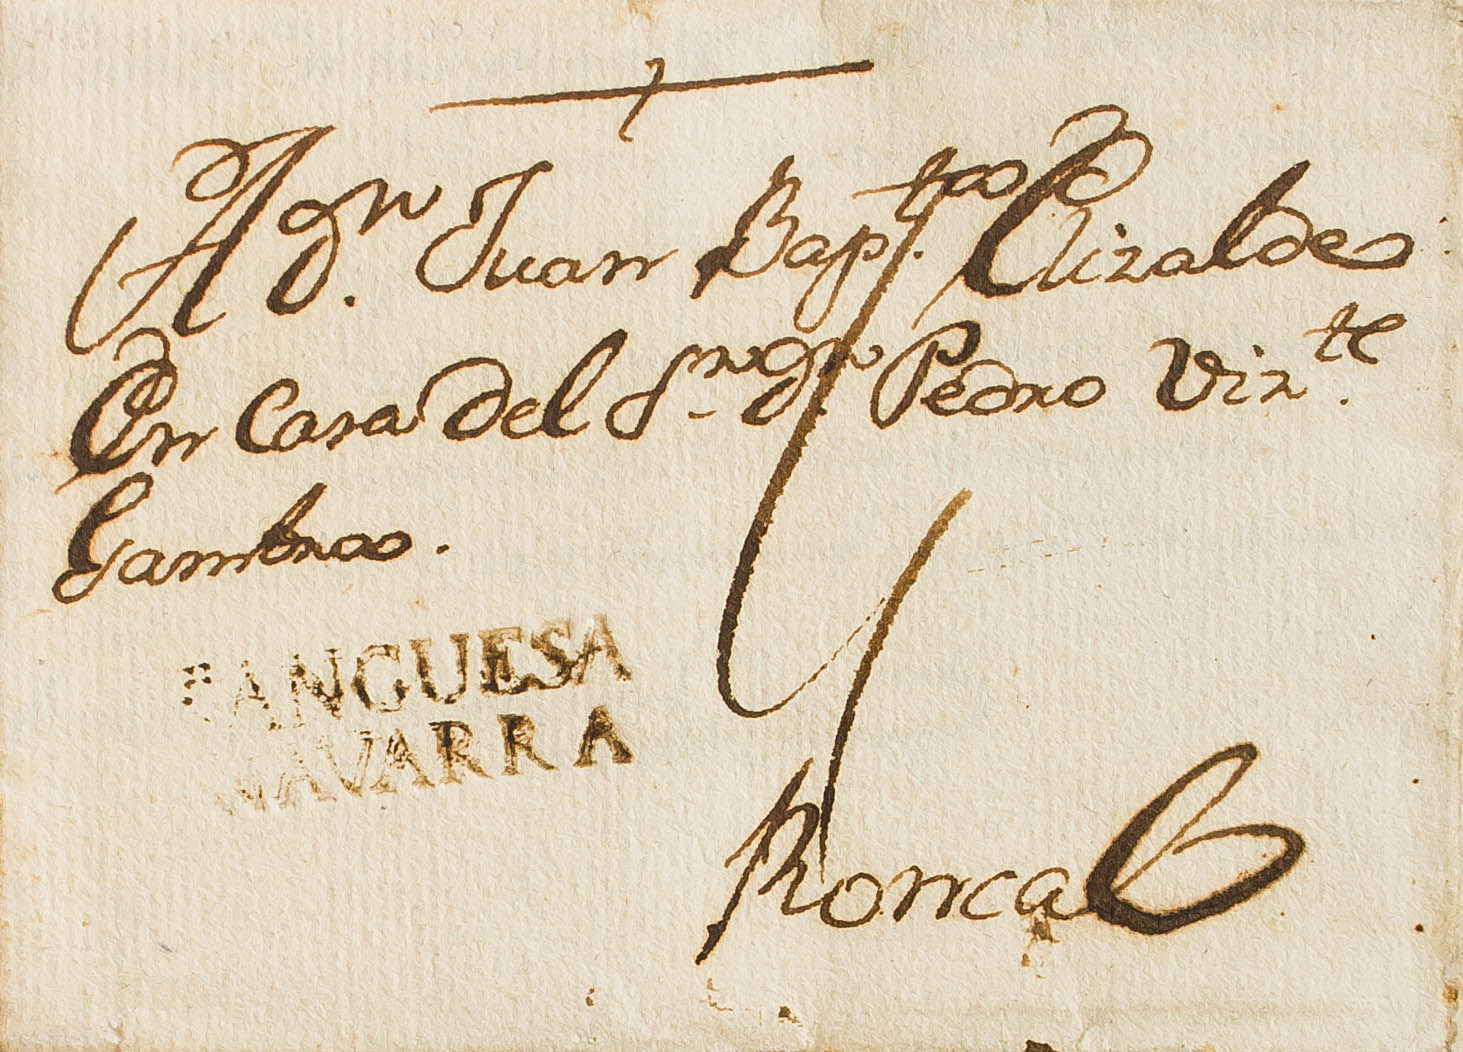 A dn. Juan Bapta. Elizalde
En Casa del Sr. dn. Pedro Vizte.
Gambra.
SANGUESA
NAVARRA
Roncal